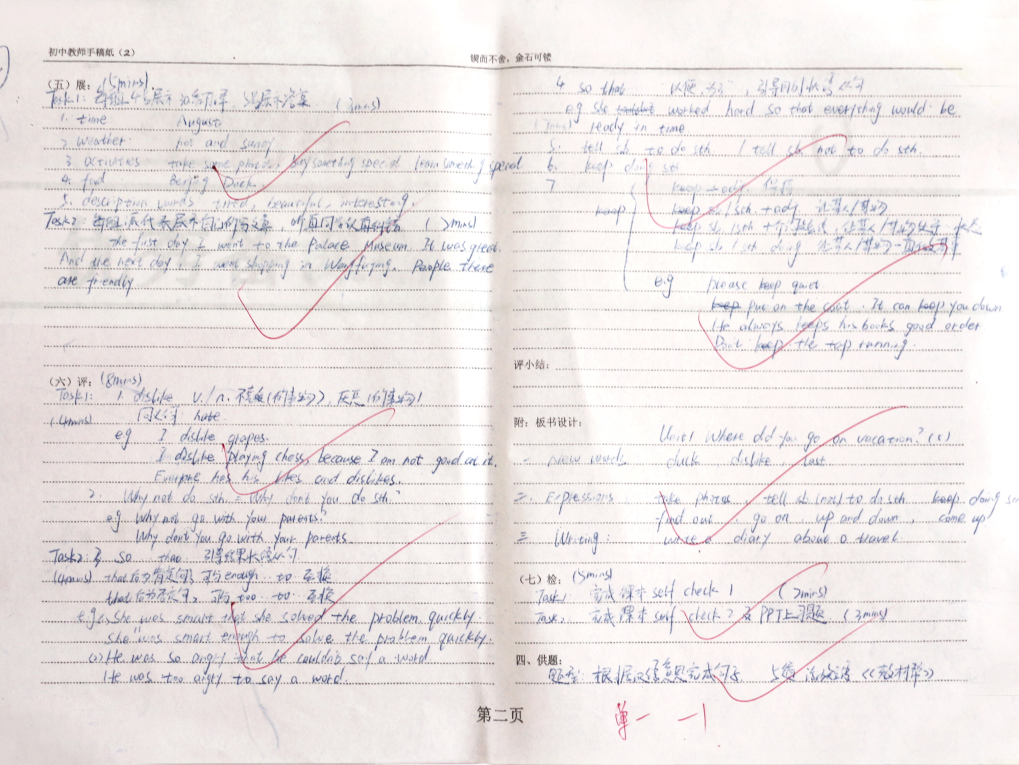 初中教师手稿纸（2）
锲而不舍，金石可镂
（五）展：(5mins)
Task1:
1. time: August
2. weather: hot and sunny
3. activities take some photos, buy something special learn something special
4. food Beijing Duck.
5. description words tired, beautiful, interesting.
Task2: (2mins)
the first day I went to the Palace Museum. It was great.
And the next day, I went shipping in Wangfujing. People there
are friendly
（六）评：(8mins)
Task1: 1. dislike v./n.
(4mins) 同义词 hate.
eg I dislike grapes.
I dislike playing chess, because I am not good at it.
Everyone has his likes and dislikes.
2. Why not do sth. = Why don't you do sth?
eg Why not go with your parents?
Why don't you go with your parents.
Task2: 3. so that 引导结果状语从句
(4mins) that后为肯定句, 可与enough to 互换
that后为否定句, 可与too to 互换
e.g. She was smart that she solved the problem quickly.
she was smart enough to solve the problem quickly.
(2) He was so angry that he couldn't say a word
He was too angry to say a word.
4. so that 以便
eg she worked hard so that everything would be
ready in time
5. tell sb. to do sth. / tell sb. not to do sth.
6. keep doing sth
7 keep + adj. 保持
keep keep sb/sth. + adj 让某人/某物
keep sb/sth +
keep sb/sth doing 让某人/某物一直做某事
e.g please keep quiet
put on the coat. It can keep you down
He always keeps his books good order
Don't keep the tap running.
评小结：
附：板书设计：
Unit1 Where did you go on vacation? (6)
一. New words duck dislike last
二. Expressions take photos, tell sb (not) to do sth. keep doing
find out, go on, up and down, come up
三. Writing: write a diary about a travel
（七）检：(5mins)
Task1 完成课本 self check 1 (2mins)
Task2 完成课本 self check 2 及 PPT上习题 (3mins)
四、供题：
题型: 根据汉语意思完成句子 5
第二页
单一 一1